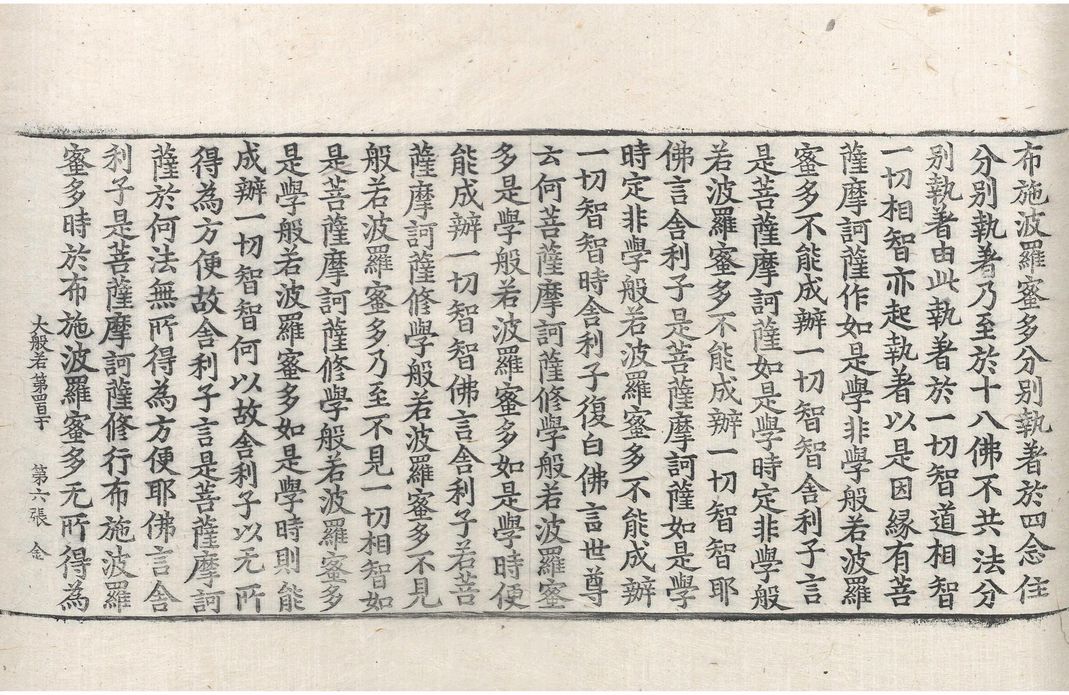 布施波羅蜜多分別執著於四念住
分別執著乃至於十八佛不共法分
別執著由此執著於一切智道相智
一切相智亦起執著以是因緣有菩
薩摩訶薩作如是學非學般若波羅
蜜多不能成辦一切智智舍利子言
是菩薩摩訶薩如是學時定非學般
若波羅蜜多不能成辦一切智智耶
佛言舍利子是菩薩摩訶薩如是學
時定非學般若波羅蜜多不能成辦
一切智智時舍利子復白佛言世尊
云何菩薩摩訶薩修學般若波羅蜜
多是學般若波羅蜜多如是學時便
能成辦一切智智佛言舍利子若菩
薩摩訶薩修學般若波羅蜜多不見
般若波羅蜜多乃至不見一切相智如
是菩薩摩訶薩修學般若波羅蜜多
是學般若波羅蜜多如是學時則能
成辦一切智智何以故舍利子以无所
得為方便故舍利子言是菩薩摩訶
薩於何法無所得為方便耶佛言舍
利子是菩薩摩訶薩修行布施波羅
蜜多時於布施波羅蜜多无所得為
大般若第四百十 第六張 金